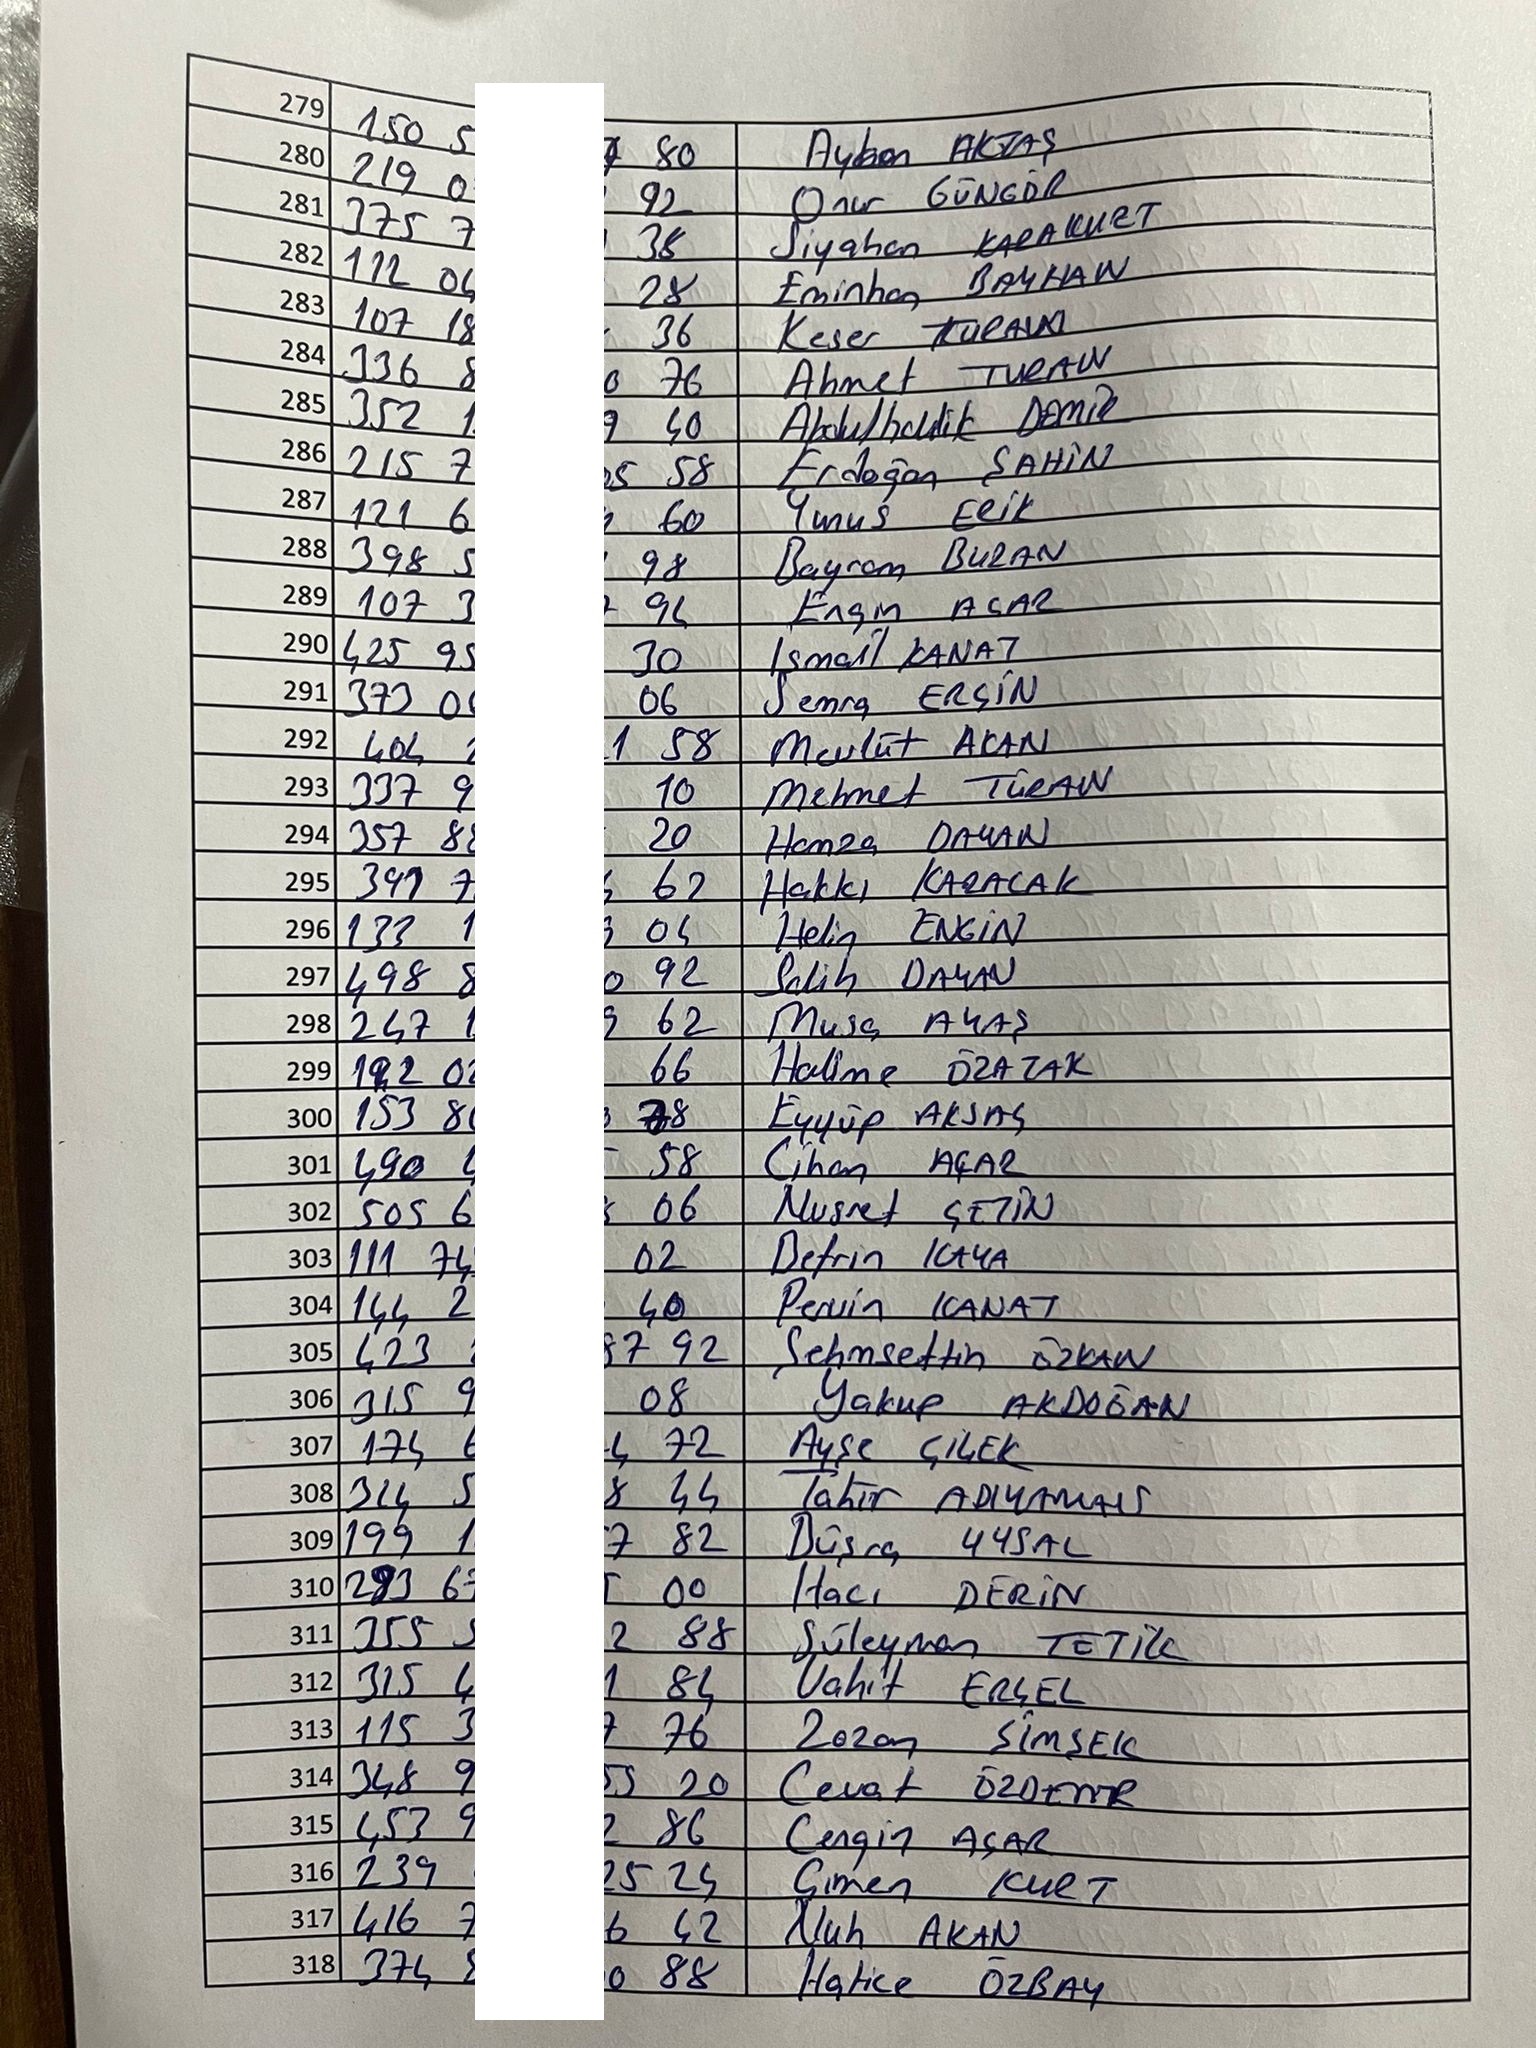 279 150 5 80 Ayhan AKTAŞ
280 219 0 92 Onur GÜNGÖR
281 375 7 38 Siyahan KARAKURT
282 112 04 28 Eminhan BAYHAN
283 107 18 36 Keser
284 336 8 0 76 Ahmet TURAN
285 352 1 9 40 Abdulhalik DEMİR
286 215 7 05 58 Erdoğan ŞAHİN
287 121 6 60 Yunus ERİK
288 398 5 98 Bayram BURAN
289 107 3 94 Engin ACAR
290 425 95 30 İsmail KANAT
291 373 06 06 Semra ERŞİN
292 404 1 58 Mevlüt AKAN
293 337 9 10 Mehmet TURAN
294 357 88 20 Hamza DAYAN
295 391 7 62 Hakkı KARACAK
296 133 1 3 04 Helin ENGİN
297 498 8 0 92 Salih DAYAN
298 247 1 9 62 Musa AYAŞ
299 192 02 66 Halime ÖZATAK
300 153 8 3 78 Eyyüp AKSAŞ
301 490 4 58 Cihan AÇAR
302 505 6 06 Nusret ÇETİN
303 111 74 02 Befrin KAYA
304 144 2 40 Pervin KANAT
305 423 87 92 Sehmsettin ÖZKAN
306 315 9 08 Yakup AKDOĞAN
307 174 6 4 72 Ayşe ÇİÇEK
308 314 5 8 44 Tahir ADIYAMAN
309 199 1 7 82 Büşra UYSAL
310 293 67 00 Hacı DERİN
311 355 5 2 88 Süleyman TETİK
312 315 4 1 84 Vahit ERÇEL
313 115 3 7 76 Zozan ŞİMŞEK
314 348 9 55 20 Cevat ÖZDEMİR
315 453 9 2 86 Cengin AÇAR
316 239 25 24 Çimen KURT
317 416 7 6 42 Nuh AKAN
318 374 8 0 88 Hatice ÖZBAY